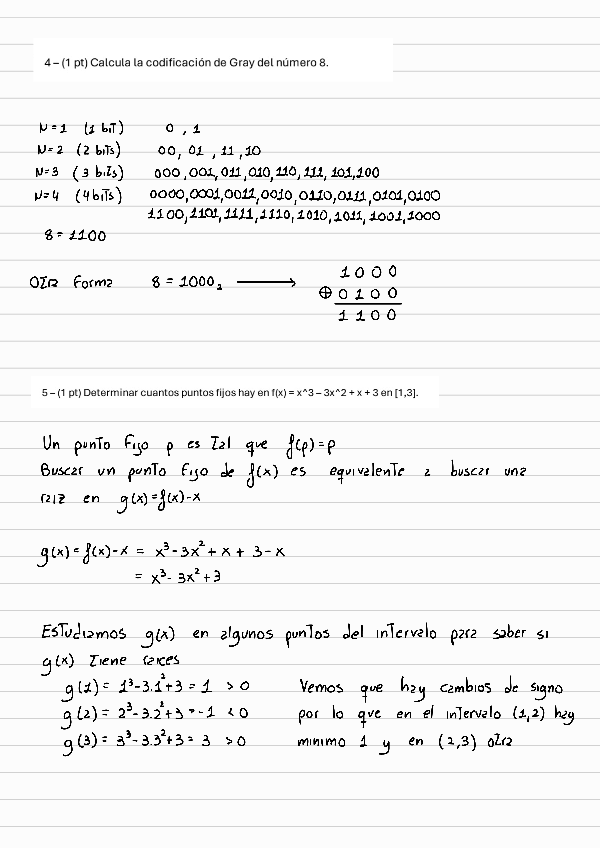 4 – (1 pt) Calcula la codificación de Gray del número 8.
N=1 (1 bit) 0, 1
N=2 (2 bits) 00, 01, 11, 10
N=3 (3 bits) 000, 001, 011, 010, 110, 111, 101, 100
N=4 (4 bits) 0000, 0001, 0011, 0010, 0110, 0111, 0101, 0100
1100, 1101, 1111, 1110, 1010, 1011, 1001, 1000
8 = 1100
Otra forma 8 = 1000₂ ⟶ 1000
⊕ 0100
1100
5 – (1 pt) Determinar cuantos puntos fijos hay en f(x) = x^3 – 3x^2 + x + 3 en [1,3].
Un punto fijo p es tal que f(p)=p
Buscar un punto fijo de f(x) es equivalente a buscar una
raiz en g(x)=f(x)-x
g(x) = f(x)-x = x³-3x²+x+3-x
= x³-3x²+3
Estudiamos g(x) en algunos puntos del intervalo para saber si
g(x) tiene raices
g(1) = 1³-3.1²+3 = 1 >0 Vemos que hay cambios de signo
g(2) = 2³-3.2²+3 = -1 <0 por lo que en el intervalo (1,2) hay
g(3) = 3³-3.3²+3 = 3 >0 minimo 1 y en (2,3) otra